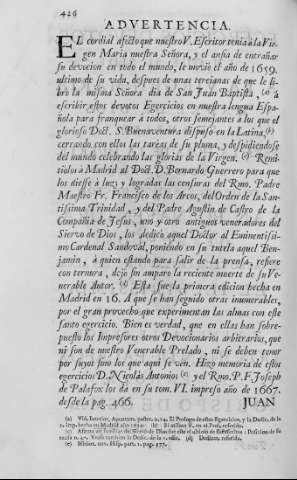 426
ADVERTENCIA.
EL cordial afecto que nuestro V. Escritor tenia à la Vir-
gen Maria nuestra Señora, y el ansia de entrañar
su devocion en todo el mundo, le moviò año de 1659.
ultimo de su vida, despues de unas tercianas de que le li-
brò la misma Señora dia de San Juan Baptista, (a) à
escribir estos devotos Egercicios en nuestra lengua Espa-
ñola para franquear à todos, otros semejantes à los que el
glorioso Doct. S. Buenaventura dispuso en la Latina, (b)
cerrando con ellos las taréas de su pluma, y despidiendose
del mundo celebrando las glorias de la Virgen. (c) Remi-
tiòlos à Madrid al Doct. D. Bernardo Guerrero para que
los diesse à luz; y logradas las censuras del Rmo. Padre
Maestro Fr. Francisco de los Arcos, del Orden de la San-
tissima Trinidad, y del Padre Agustin de Castro de la
Compañia de Jesus, uno y otro antiguos veneradores del
Siervo de Dios, los dedicò aquel Doctor al Eminentissi-
mo Cardenal Sandovàl, poniendo en su tutela aquel Ben-
jamin, à quien estando para salir de la prensa, refiere
con ternura, dejò sin amparo la reciente muerte de su Ve-
nerable Autor. (d) Esta fue la primera edicion hecha en
Madrid en 16. A que se han seguido otras inumerables,
por el gran provecho que experimentan las almas con este
santo egercicio. Bien es verdad, que en ellas han sobre-
puesto los Impresores otros Devocionarios arbitrarios, que
ni son de nuestro Venerable Prelado, ni se deben tener
por suyos sino los que aqui se vèn. Hizo memoria de estos
egercicios D. Nicolàs Antonio; (e) y el Rmo. P. F. Joseph
de Palafox los dà en su tom. VI. impreso año de 1667.
desde la pag. 466. JUAN
(a) Vid. Interior,
(b)
(c)
(d)
(e) part. 1. pag. 577.